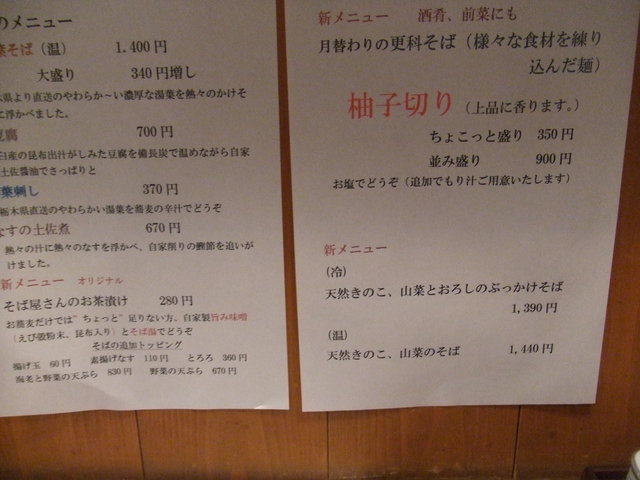 のメニュー
そば（温） 1.400 円
大盛り 340 円増し
木県より直送のやわらか〜い濃厚な湯葉を熱々のかけそ
に浮かべました。
豆腐 700 円
臼産の昆布出汁がしみた豆腐を備長炭で温めながら自家
土佐醤油でさっぱりと
葉刺し 370 円
栃木県直送のやわらかい湯葉を蕎麦の辛汁でどうぞ
なすの土佐煮 670 円
熱々の汁に熱々のなすを浮かべ、自家削りの鰹節を追いが
けました。
新メニュー オリジナル
そば屋さんのお茶漬け 280 円
お蕎麦だけでは”ちょっと”足りない方、自家製旨み味噌
（えび殻粉末、昆布入り）とそば湯でどうぞ
そばの追加トッピング
揚げ玉 60 円 素揚げなす 110 円 とろろ 360 円
海老と野菜の天ぷら 830 円 野菜の天ぷら 670 円
新メニュー 酒肴、前菜にも
月替わりの更科そば（様々な食材を練り
込んだ麺）
柚子切り（上品に香ります。）
ちょこっと盛り 350 円
並み盛り 900 円
お塩でどうぞ（追加でもり汁ご用意いたします）
新メニュー
（冷）
天然きのこ、山菜とおろしのぶっかけそば
1,390 円
（温）
天然きのこ、山菜のそば 1,440 円